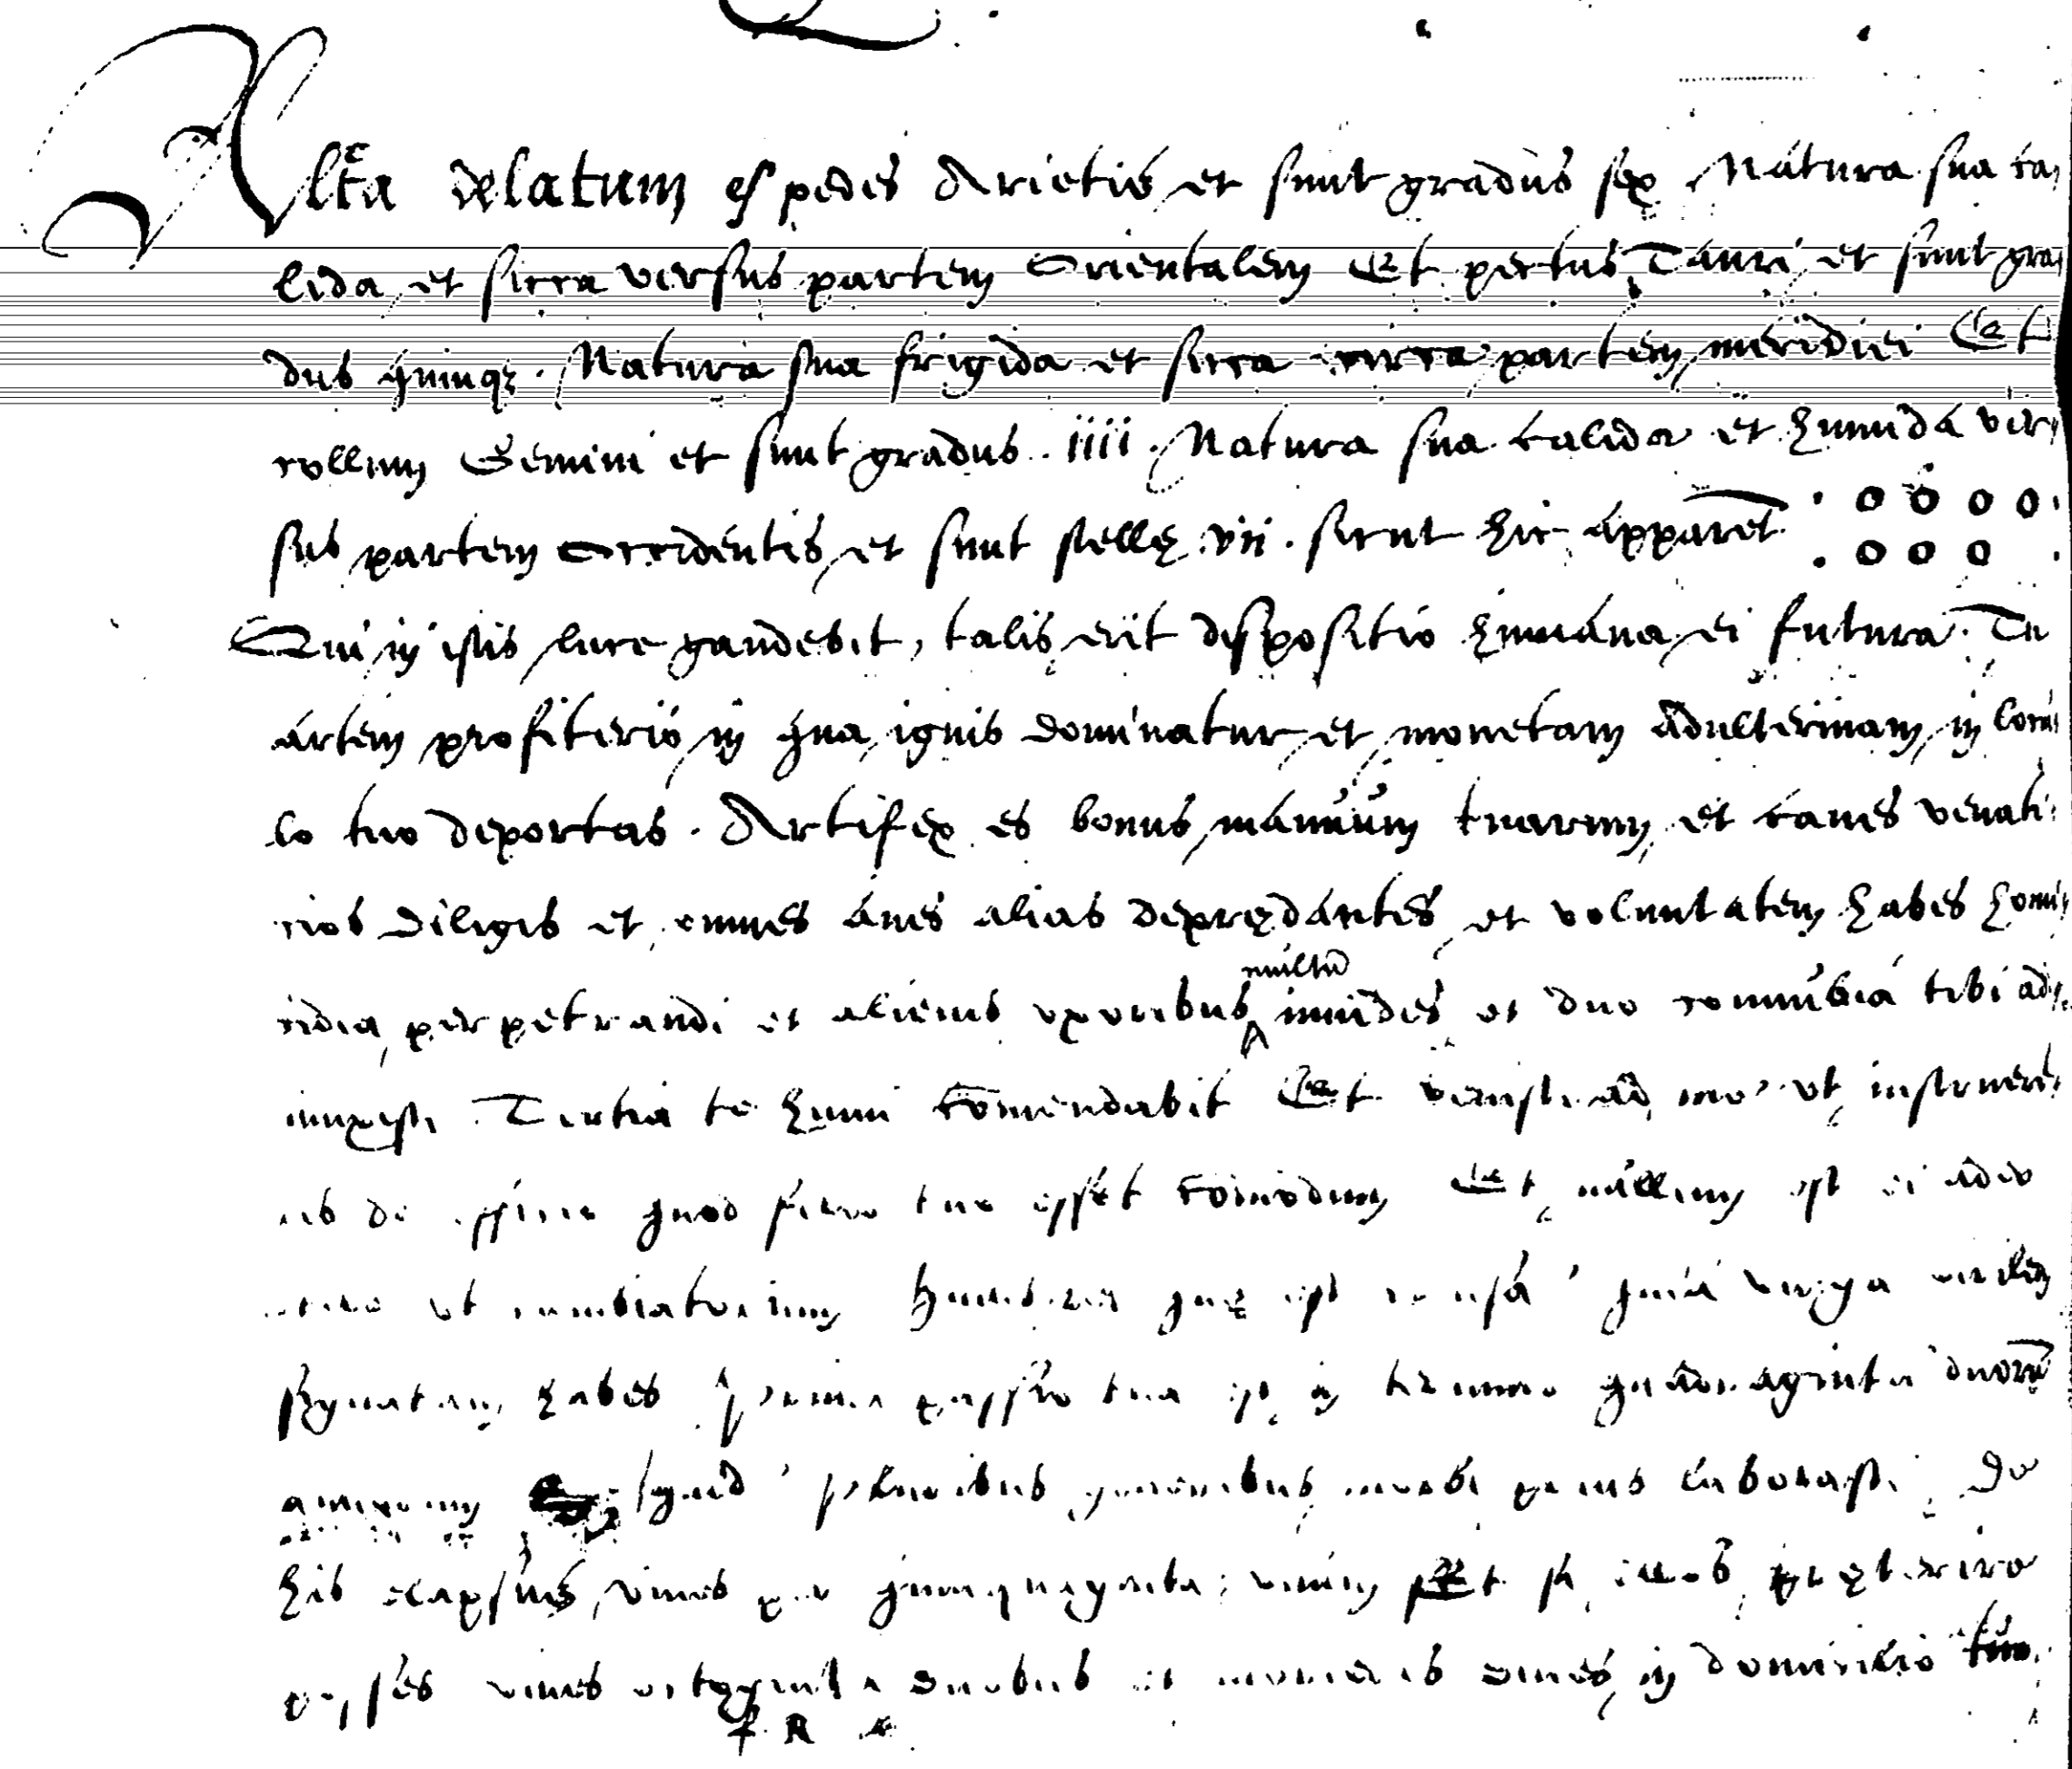 Alt͞a delatum est pedes Arietis et sunt gradus sex Natura sua ca
lida et sicca versus partem Orientalem Et pectus Tauri et sunt gra
dus quinqꝫ. Natura sua frigida et sicca circa partem meridiei Et
collum Gemini et sunt gradus .iiii. Natura sua calida et humida ver
sus partem Occidentis et sunt stellę .vii. sicut hic apparet . o o o o .
. o o o .
Qui in istis luce gaudebit, talis erit dispositio humana ei futura. Tu
artem profiteris in qua ignis dominatur et monetam adulterinam in locu
lo tuo deportas. Artifex es bonus manuum tuarum et canes venati
cios diligis et omnes aves alias depredantes et voluntatem habes homi
cidia perpetrandi et alienis uxoribus multum invides et duo connubia tibi ad
iunxesti Tertia te humi comendabit Et venisti ad me ut instruere
ris de quod tue esset comodum Et nullum est ei adeo
ut quę est causa quia virga virilem
signatam habes prima passio tua est in termino quadraginta duorum
annorum pluribus generibus morbi prius laborasti De
his elapsus vives per quinquaginta unum Et si illos preterire
posses vives octoginta duobus et morieris dives in domicilio tuo.